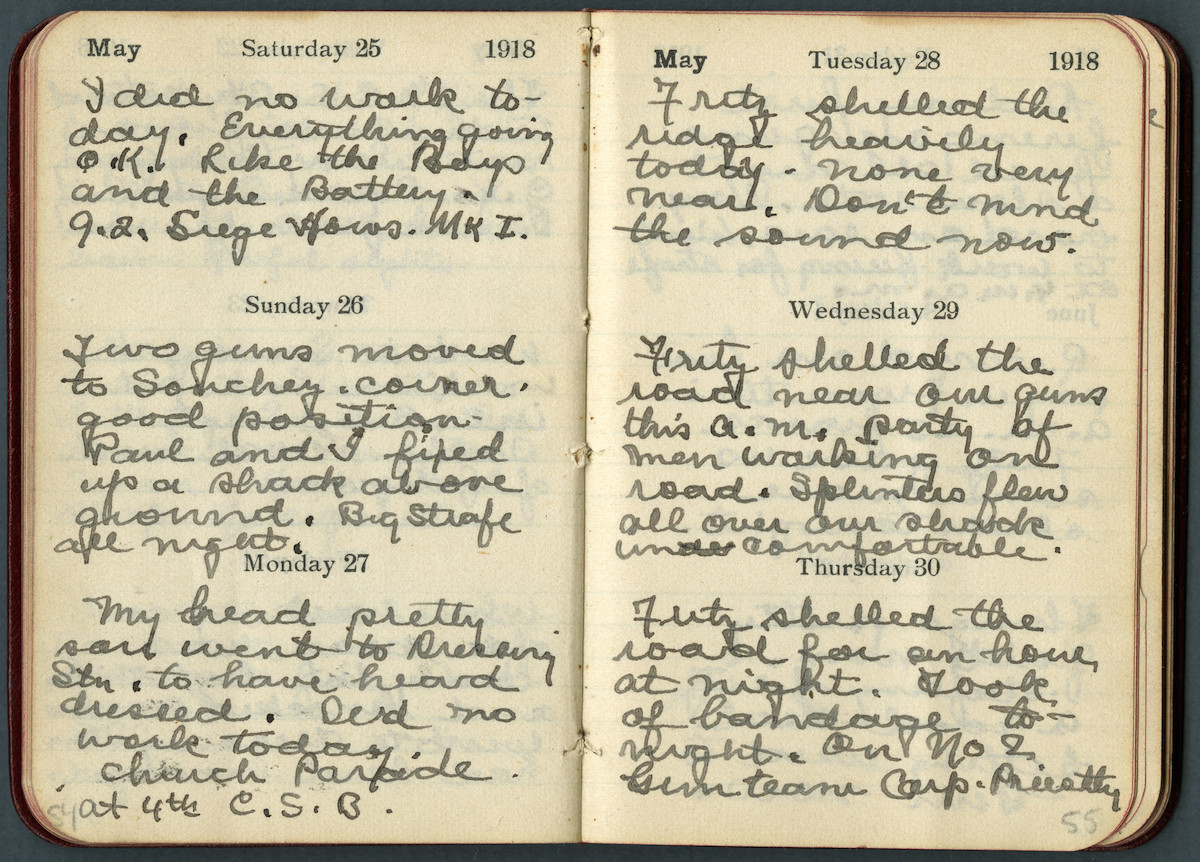 May Saturday 25 1918
I did no work to-
day. Everything going
O.K. Like the Boys
and the Battery.
9.2. Siege Hows. Mk I.
Sunday 26
Two guns moved
to Souchez. corner.
good position.
Paul and I fixed
up a shack above
ground. Big Strafe
all night.
Monday 27
My head pretty
sore went to Dressing
Stn. to have heard
dressed. Did no
work today.
Church Parade.
at 4th C.S.B.
54
May Tuesday 28 1918
Fritz shelled the
ridge heavily
today. none very
near. Don't mind
the sound now.
Wednesday 29
Fritz shelled the
road near our guns
this a.m. party of
men working on
road. Splinters flew
all over our shack
uncomfortable.
Thursday 30
Fritz shelled the
road for an hour,
at night. Took
of bandage to-
night. On No 2
Gun team Corp. Priestly
55